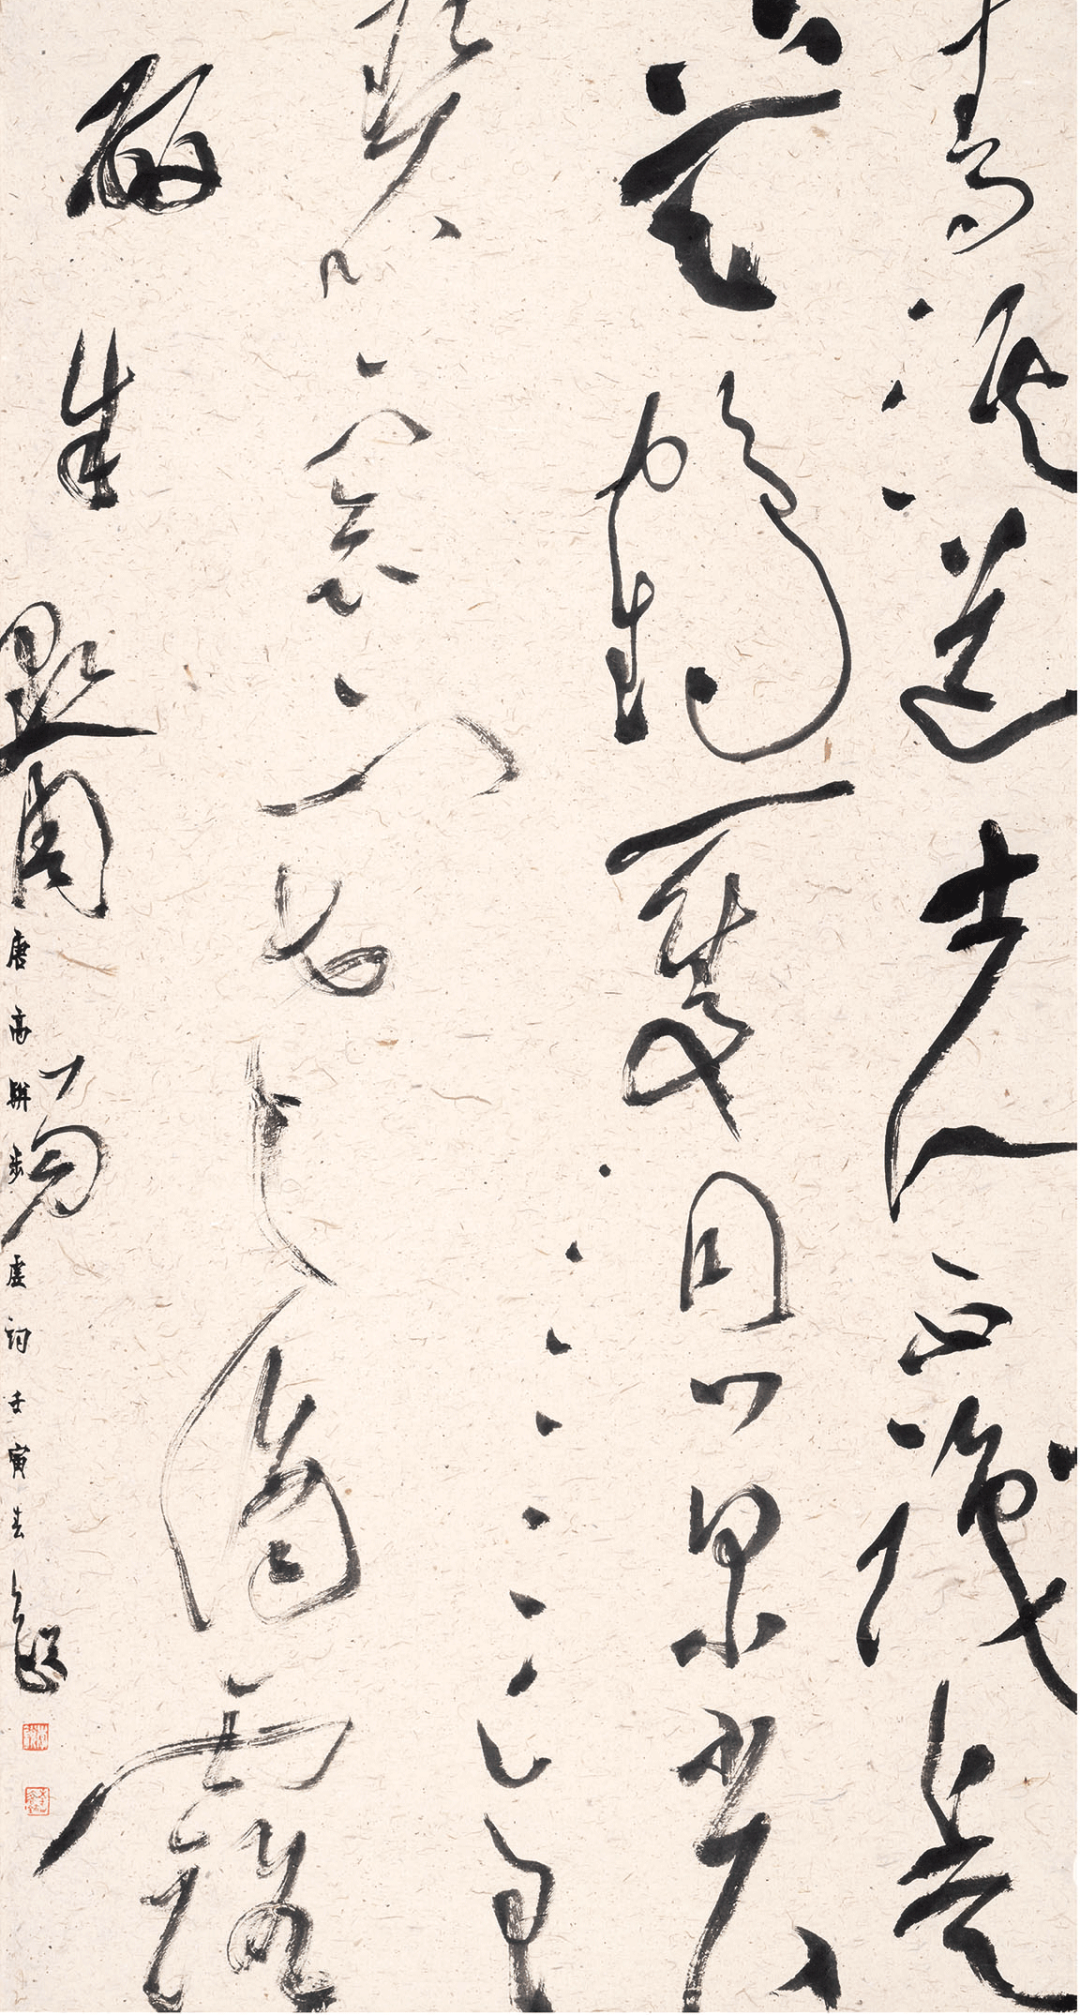 青溪道士人不識上天
下天鶴一隻洞門深鎖
碧窗寒滴露
研朱點周易
唐高駢步虛詞壬寅春